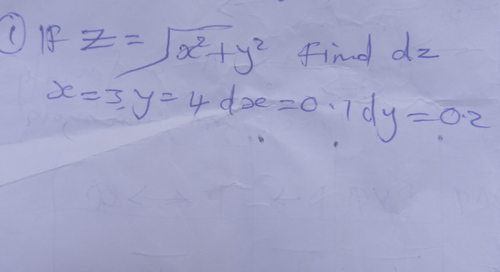 ① If Z = √x²+y² find dz
x=3, y=4 dx=0.1 dy=0.2